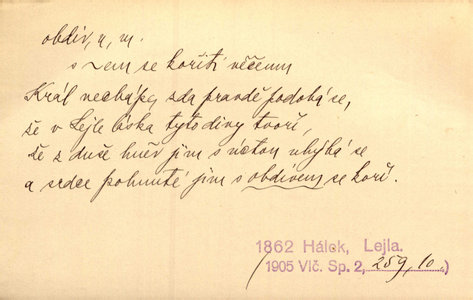 obdiv, u, m.
s 
se kořiti něčemu
Král nechápe, zda pravdě podobá se,
že v Lejle láska tyto divy tvoří,
že z duše hněv jim s  uhýbá se
a srdce pohnuté jim s obdivem se koří.
1862 Hálek, Lejla.
(1905 Vlč. Sp. 2, 259, 10.)